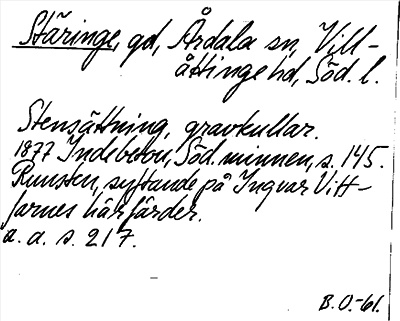 Stäringe, gd, Årdala sn, Vill-
åttinge hd, Söd. l.
Stensättning, gravkullar.
1877 Indebetou, Söd. minnen, s. 145.
Runsten, syftande på Ingvar Vitt-
farnes härfärder.
a. a. s. 217.
B. O.-61.